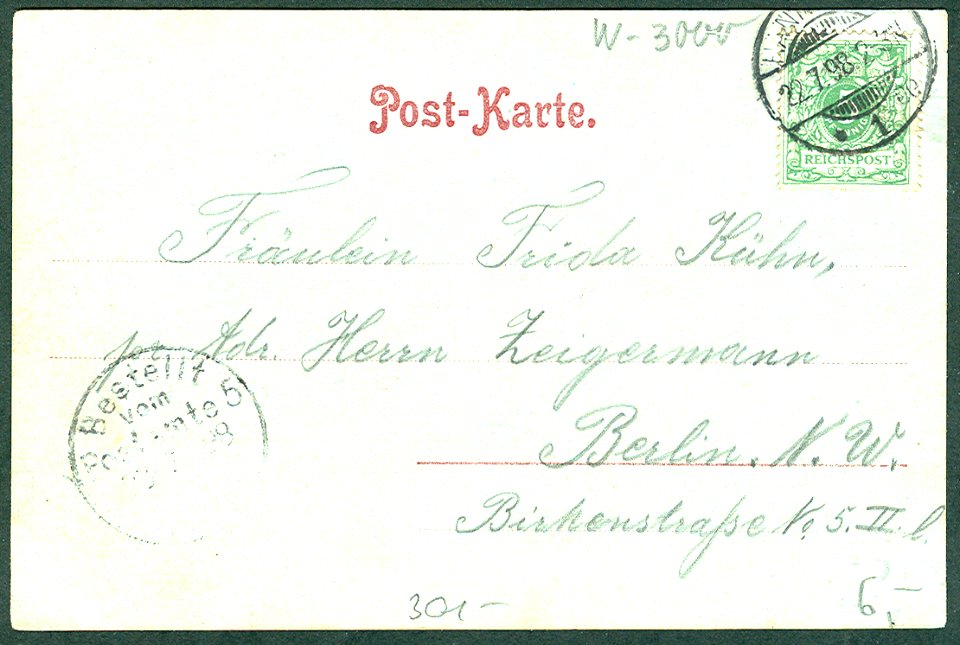 W-3000
Post-Karte.
22.7.98
1
REICHSPOST
Fräulein Frida Kühn,
pr Adr. Herrn Zeigermann
Berlin. N. W.
Birkenstraße No 5. II. l.
Bestellt
vom
Postamte 5
98
301-
6,-